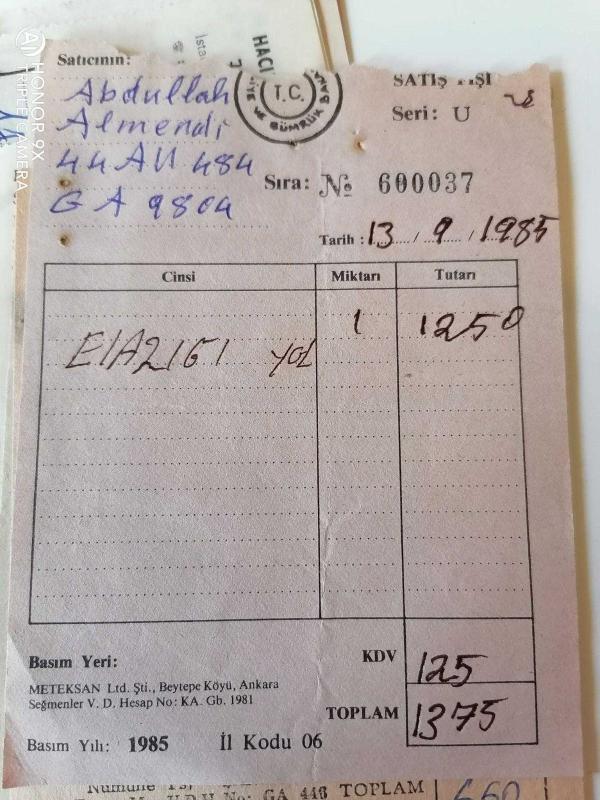 HONOR 9X
TRIPLE CAMERA
Satıcının:
Abdullah
Almendi
44 AU 484
GA 9804
HACI
T.C.
VE GÜMRÜK BAKA
SATIŞ FİŞİ
Seri: U
Sıra: № 600037
Tarih : 13 / 9 / 1985
Cinsi Miktarı Tutarı
1 1250
yol
KDV 125
Basım Yeri:
METEKSAN Ltd. Şti., Beytepe Köyü, Ankara
Seğmenler V. D. Hesap No: KA. Gb. 1981
TOPLAM 1375
Basım Yılı: 1985 İl Kodu 06
GA 446 TOPLAM 660